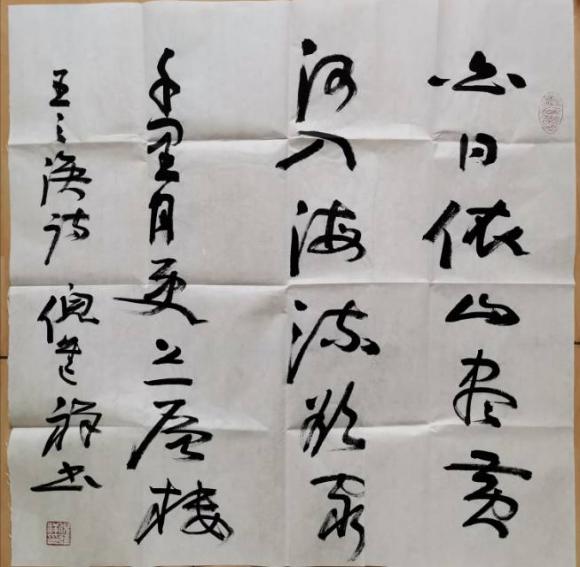 白日依山尽黄
河入海流欲穷
千里目更上一层楼
王之涣诗 倪祥书